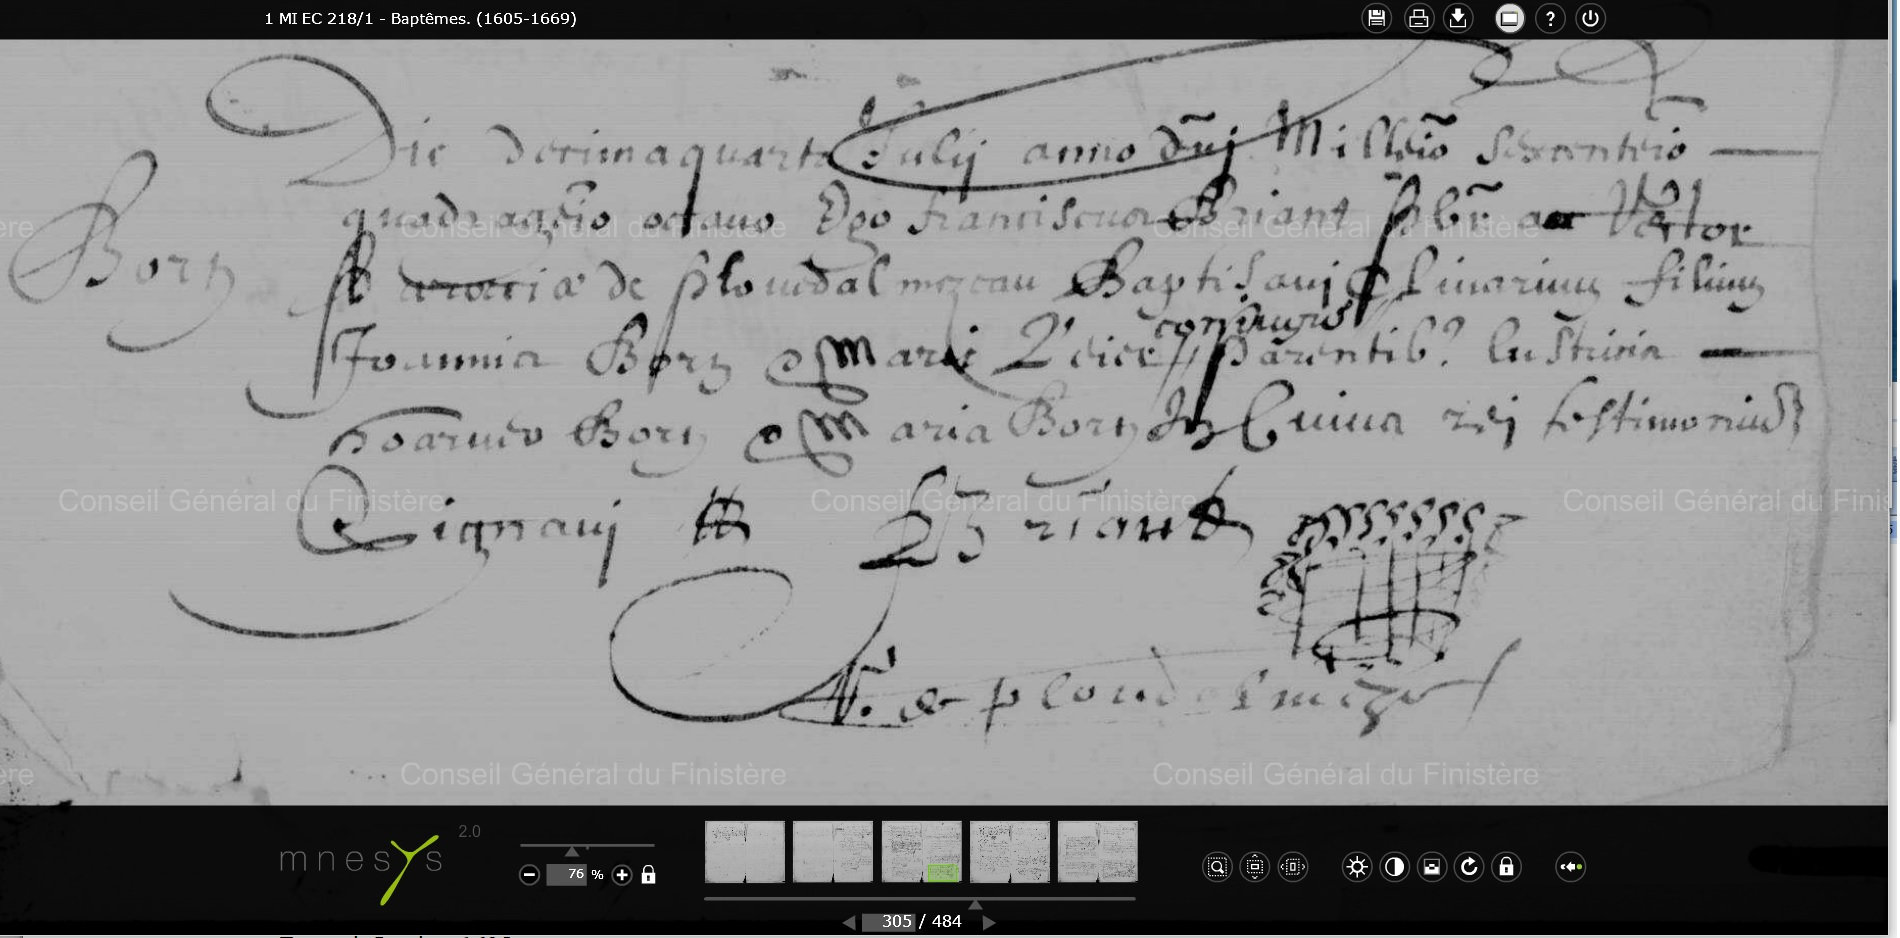 1 MI EC 218/1 - Baptêmes. (1605-1669)
Die decimaquarta Julij anno dñj Millẽio Sexcentẽio
quadragẽio octauo Ego franciscus Briant pbr̃
Born
parociæ de ploudalmezeau Baptisaui filium
coniugus
Joannis Born & Marie parentib? lustricis
hoarueo Born & Maria Born In Cuius rei testimoniũ
Signauj Briant
de ploudalmezeau
Conseil Général du Finistère
Conseil Général du Finistère
Conseil Général du Finistère
Conseil Général du Finistère
Conseil Général du Finis
Conseil Général du Finistère
Conseil Général du Finistère
mnesys 2.0
76 %
305 / 484